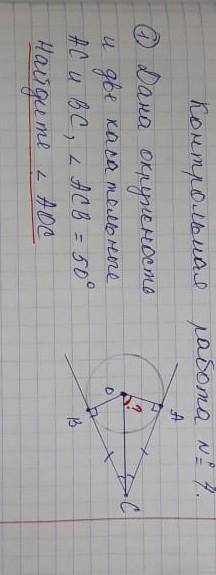 Контрольная работа №7.
① Дана окружность
и две касательные
AC и BC, ∠ ACB = 50°
Найдите ∠ AOC
A
?
O
C
B